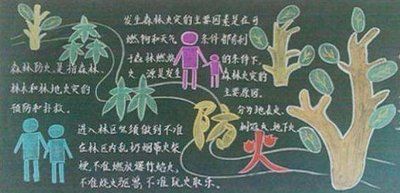 发生森林火灾的主要因素是在可
燃物和天气条件都有利
于森林燃烧的条件下,
火源是发生森林火灾的
主要原因。
分为地表火、
树冠火、地下火
森林防火,是指森林、
林木和林地火灾的
预防和扑救。
防火
进入林区必须做到不准
在林区内乱扔烟蒂火柴
梗,不准燃放爆竹焰火,
不准烧火驱兽,不准玩火取乐。